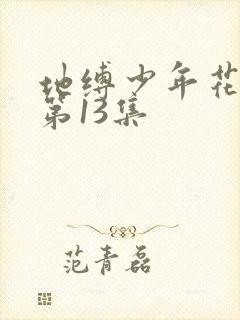 地缚少年花
第13集
范青磊